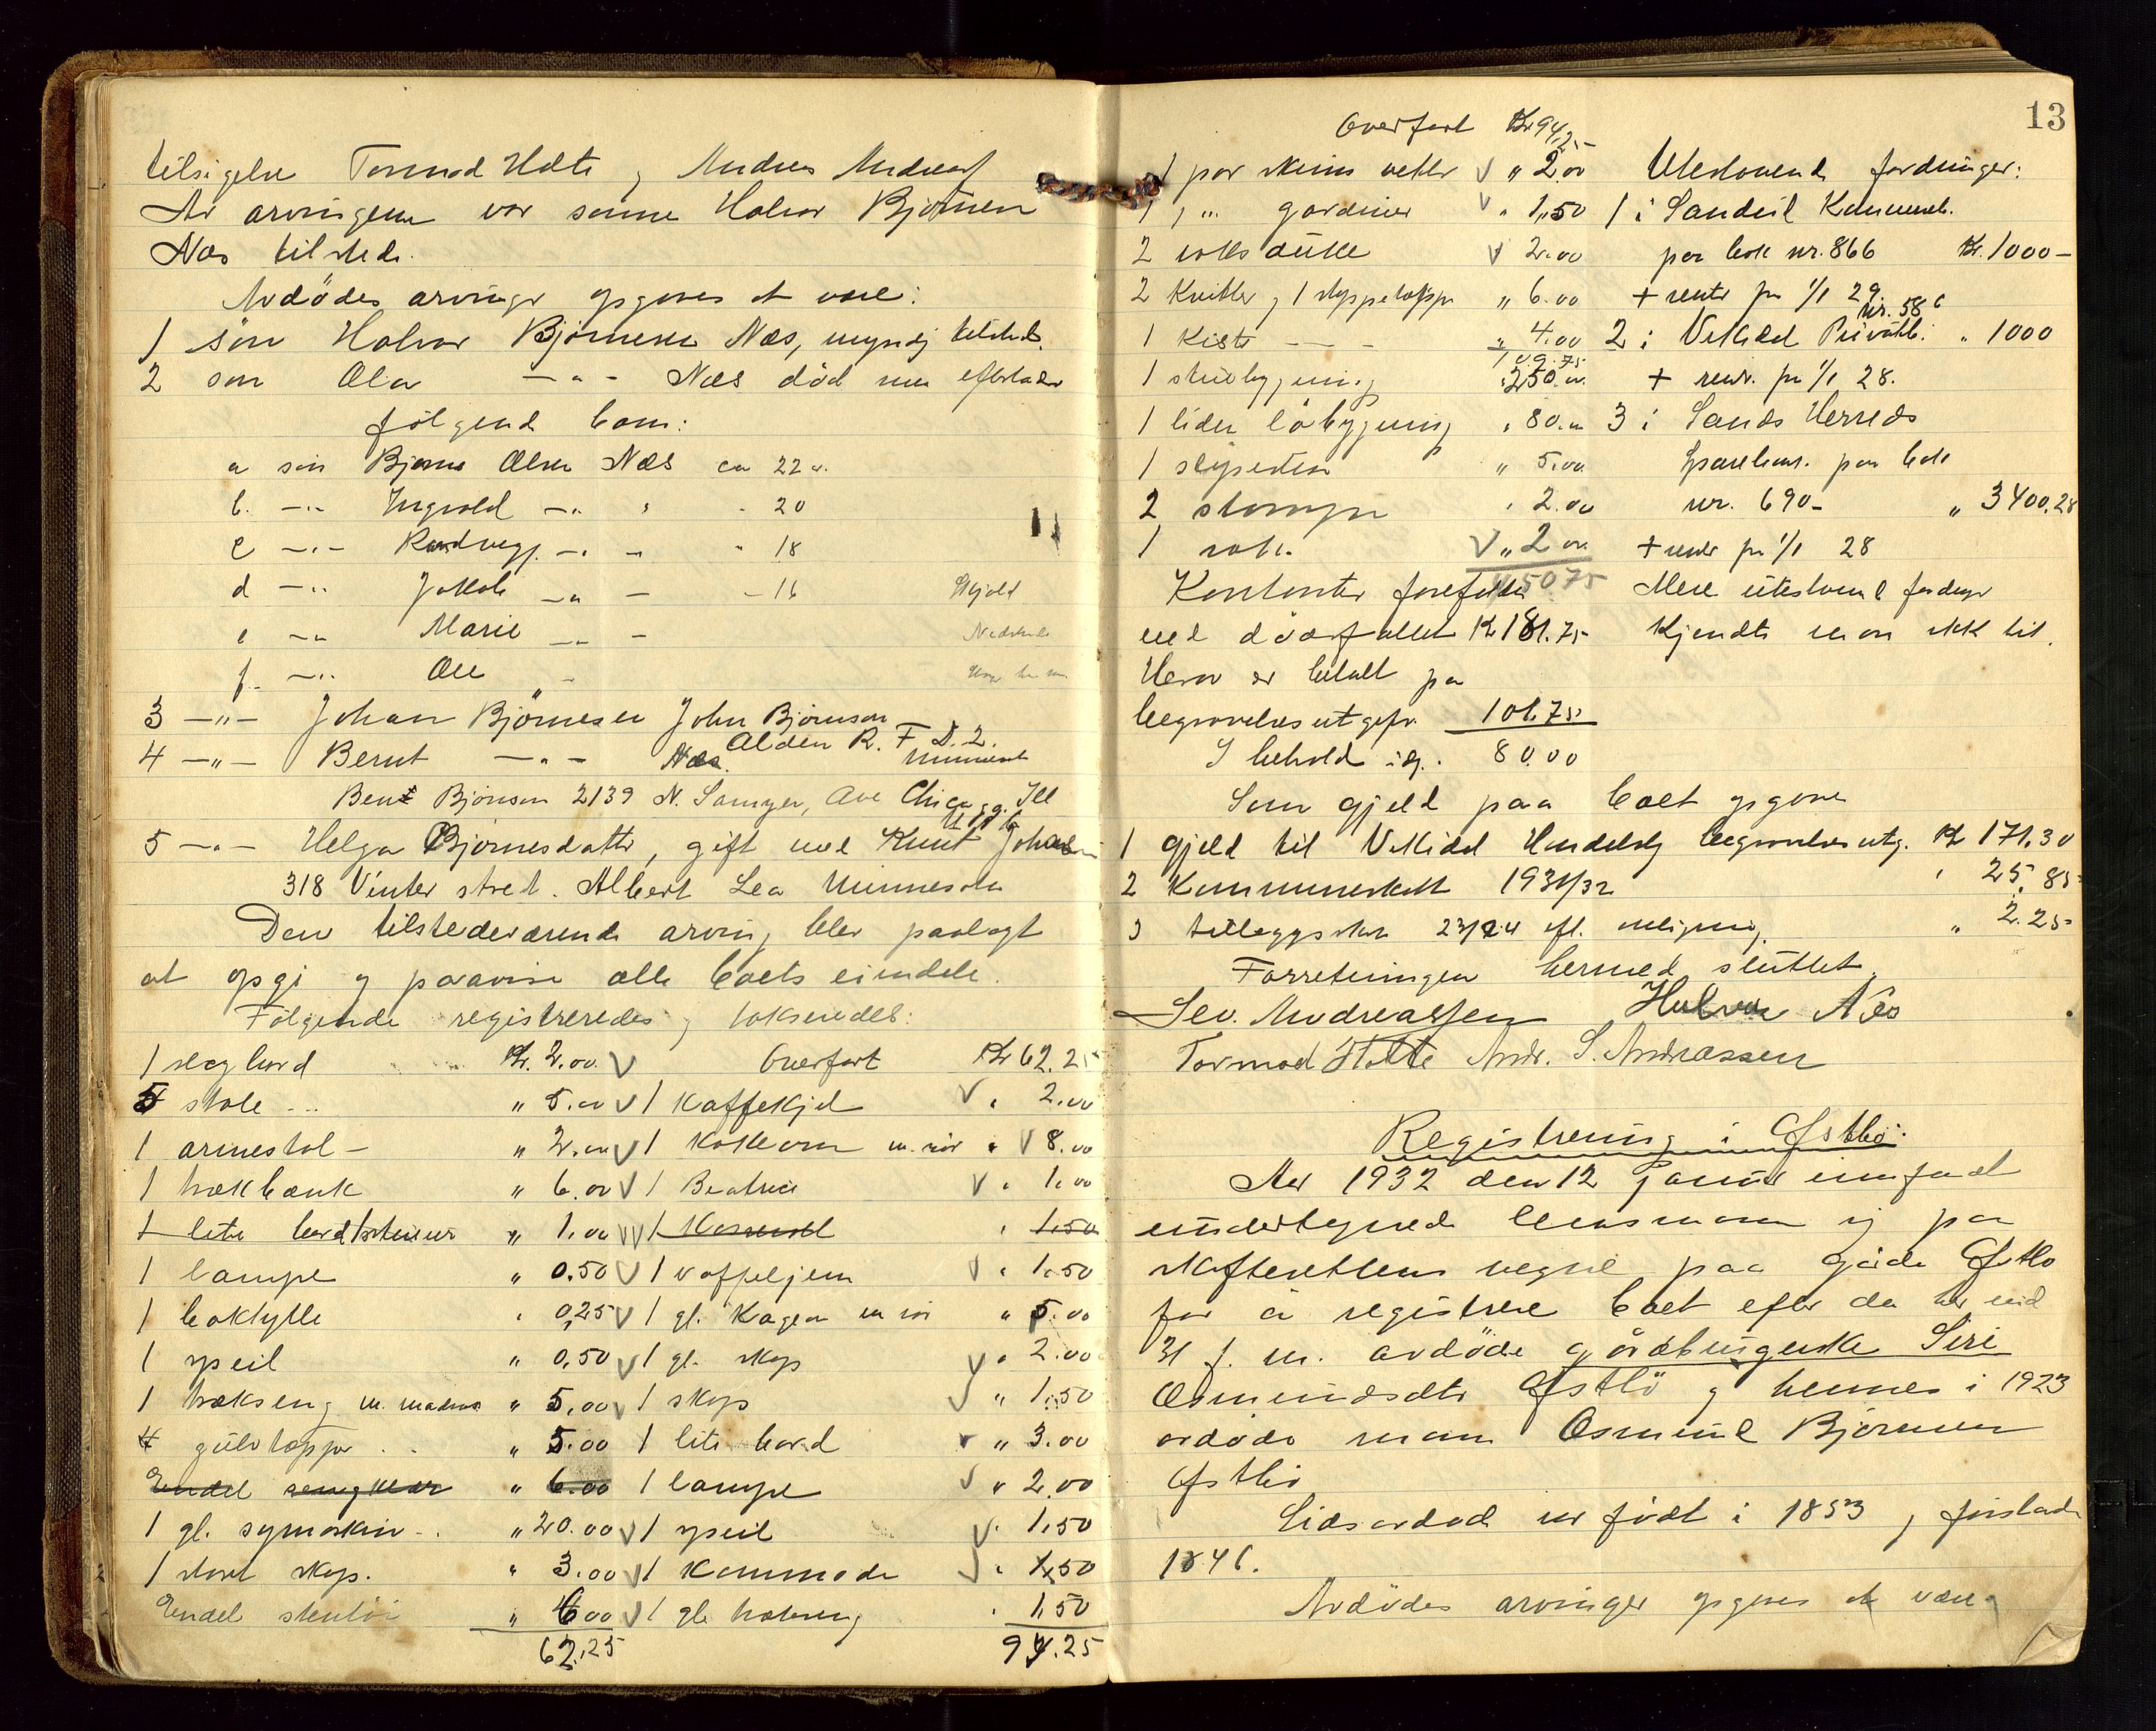 tilsigelse Tormod Holte og Andreas Andreas
Av arvingene var sønne Halvor Bjørnsen
Næs tilstede.
Avdødes arvinger opgaves at være:
1 søn Halvor Bjørnsen Næs, myndig tilstede.
2 søn Ola -"- Næs død men efterlader
følgende barn:
a søn Bjørne Olsen Næs ca 22 a.
b. -"- Ingvald -"- " - 20
c -"- -"- " - 18
d -"- Jakob -"- - 16 Skjold
e -"- Marie -"- - Nedstrand
f. -"- Ole "
3 -"- Johan Bjørnesen John Bjørnson
Alden R. F. D. 2.
4 -"- Bernt -"- Næs. Minnesota
Bent Bjørnson 2139 N. Sawyer, Ave Chicago. Ill
5 -"- Helga Bjørnesdatter, gift med Knut Johansen
318 Vinter street. Albert Lea Minnesota
Den tilstedeværende arving blev paalagt
at opgi og paavise alle boets eiendele.
Følgende registreredes og takseredes:
1 slagbord Kr. 2.00 V Overført Kr 62.25
5 stole ... " 5.00 V 1 Kaffekjel V " 2.00
1 armestol - " 2.00 V 1 Kokeovn m. rør " V 8.00
1 trækbænk " 6.00 V 1 Beatrice V " 1.00
1 lite bord " 1.00 V 1 " 1.50
1 lampe " 0.50 V 1 vaffeljern V " 1.50
1 bokhylle " 0,25 V 1 gl. Kagovn m rør " 5.00
1 speil " 0,50 V 1 gl. skap V " 2.00
1 trækseng m. madras " 5.00 V 1 skap V " 1.50
4 gulvtæpper . . " 5.00 1 lite bord V " 3.00
Endel sengklær " 6.00 1 lampe V " 2.00
1 gl. symaskin - . " 20.00 V 1 speil V. 1,50
1 stort skap. " 3.00 V 1 Kommode V " 1,50
Endel stentøi " 6.00 V 1 gl. trækseng " 1,50
62.25 94.25
13
Overført Kr 94,25
1 par skinn vetter V " 2.00 Utestaaende fordringer:
1 " gardiner V " 1,50 1 i Sandeid Kommuneb.
2 voksduke V 2.00 paa bok nr. 866 Kr. 1000-
2 Kvitler og 1 stoppeteppe " 6.00 + rente fra 1/1 29.
1 Kiste - - - " 4.00 2 i Vikedal Privatb. nr. 586 " 1000
109.75
1 stuebygning " 250.00 + rente fra 1/1 28.
1 liden løbygning " 80.00 3 i Sands Herreds
1 slipesten " 5.00 Sparebank. paa bok
2 stamper " 2.00 nr. 690- " 3400.28
1 rok. V " 2.00 + rente fra 1/1 28
45075
Kontanter forefalt Mere utestaaende fordringer
ved dødsfallet Kr 181.75 Kjendte man ikke til.
Herav er betalt paa
begravelsesutgifter 101.75
I behold igj. 80.00
Som gjeld paa boet opgaves
1 gjeld til Vikedal Handelslag begravelsesutg. Kr 171.30
2 Kommuneskatt 1931/32 " 25.85
3 tillegsskat 23/24 efl. utligning. " 2.25
Forretningen hermed sluttet.
Sev. Andreassen Halvor Næs
Tormod Holte Andr. S. Andreassen
Registrering i Østbø:
Aar 1932 den 12 januar innfandt
undertegnede lensmann sig paa
skifterettens vegne paa gaarden Østbø
for å registrere boet efter den her ved
31 f. m. avdøde gårdbrugerske Siri
Osmundsdtr Østbø og hennes i 1923
avdøde mann Osmund Bjørnsen
Østbø
Sidsavdøde var født i 1853 og førstavdøde
1846.
Avdødes arvinger opgaves at være